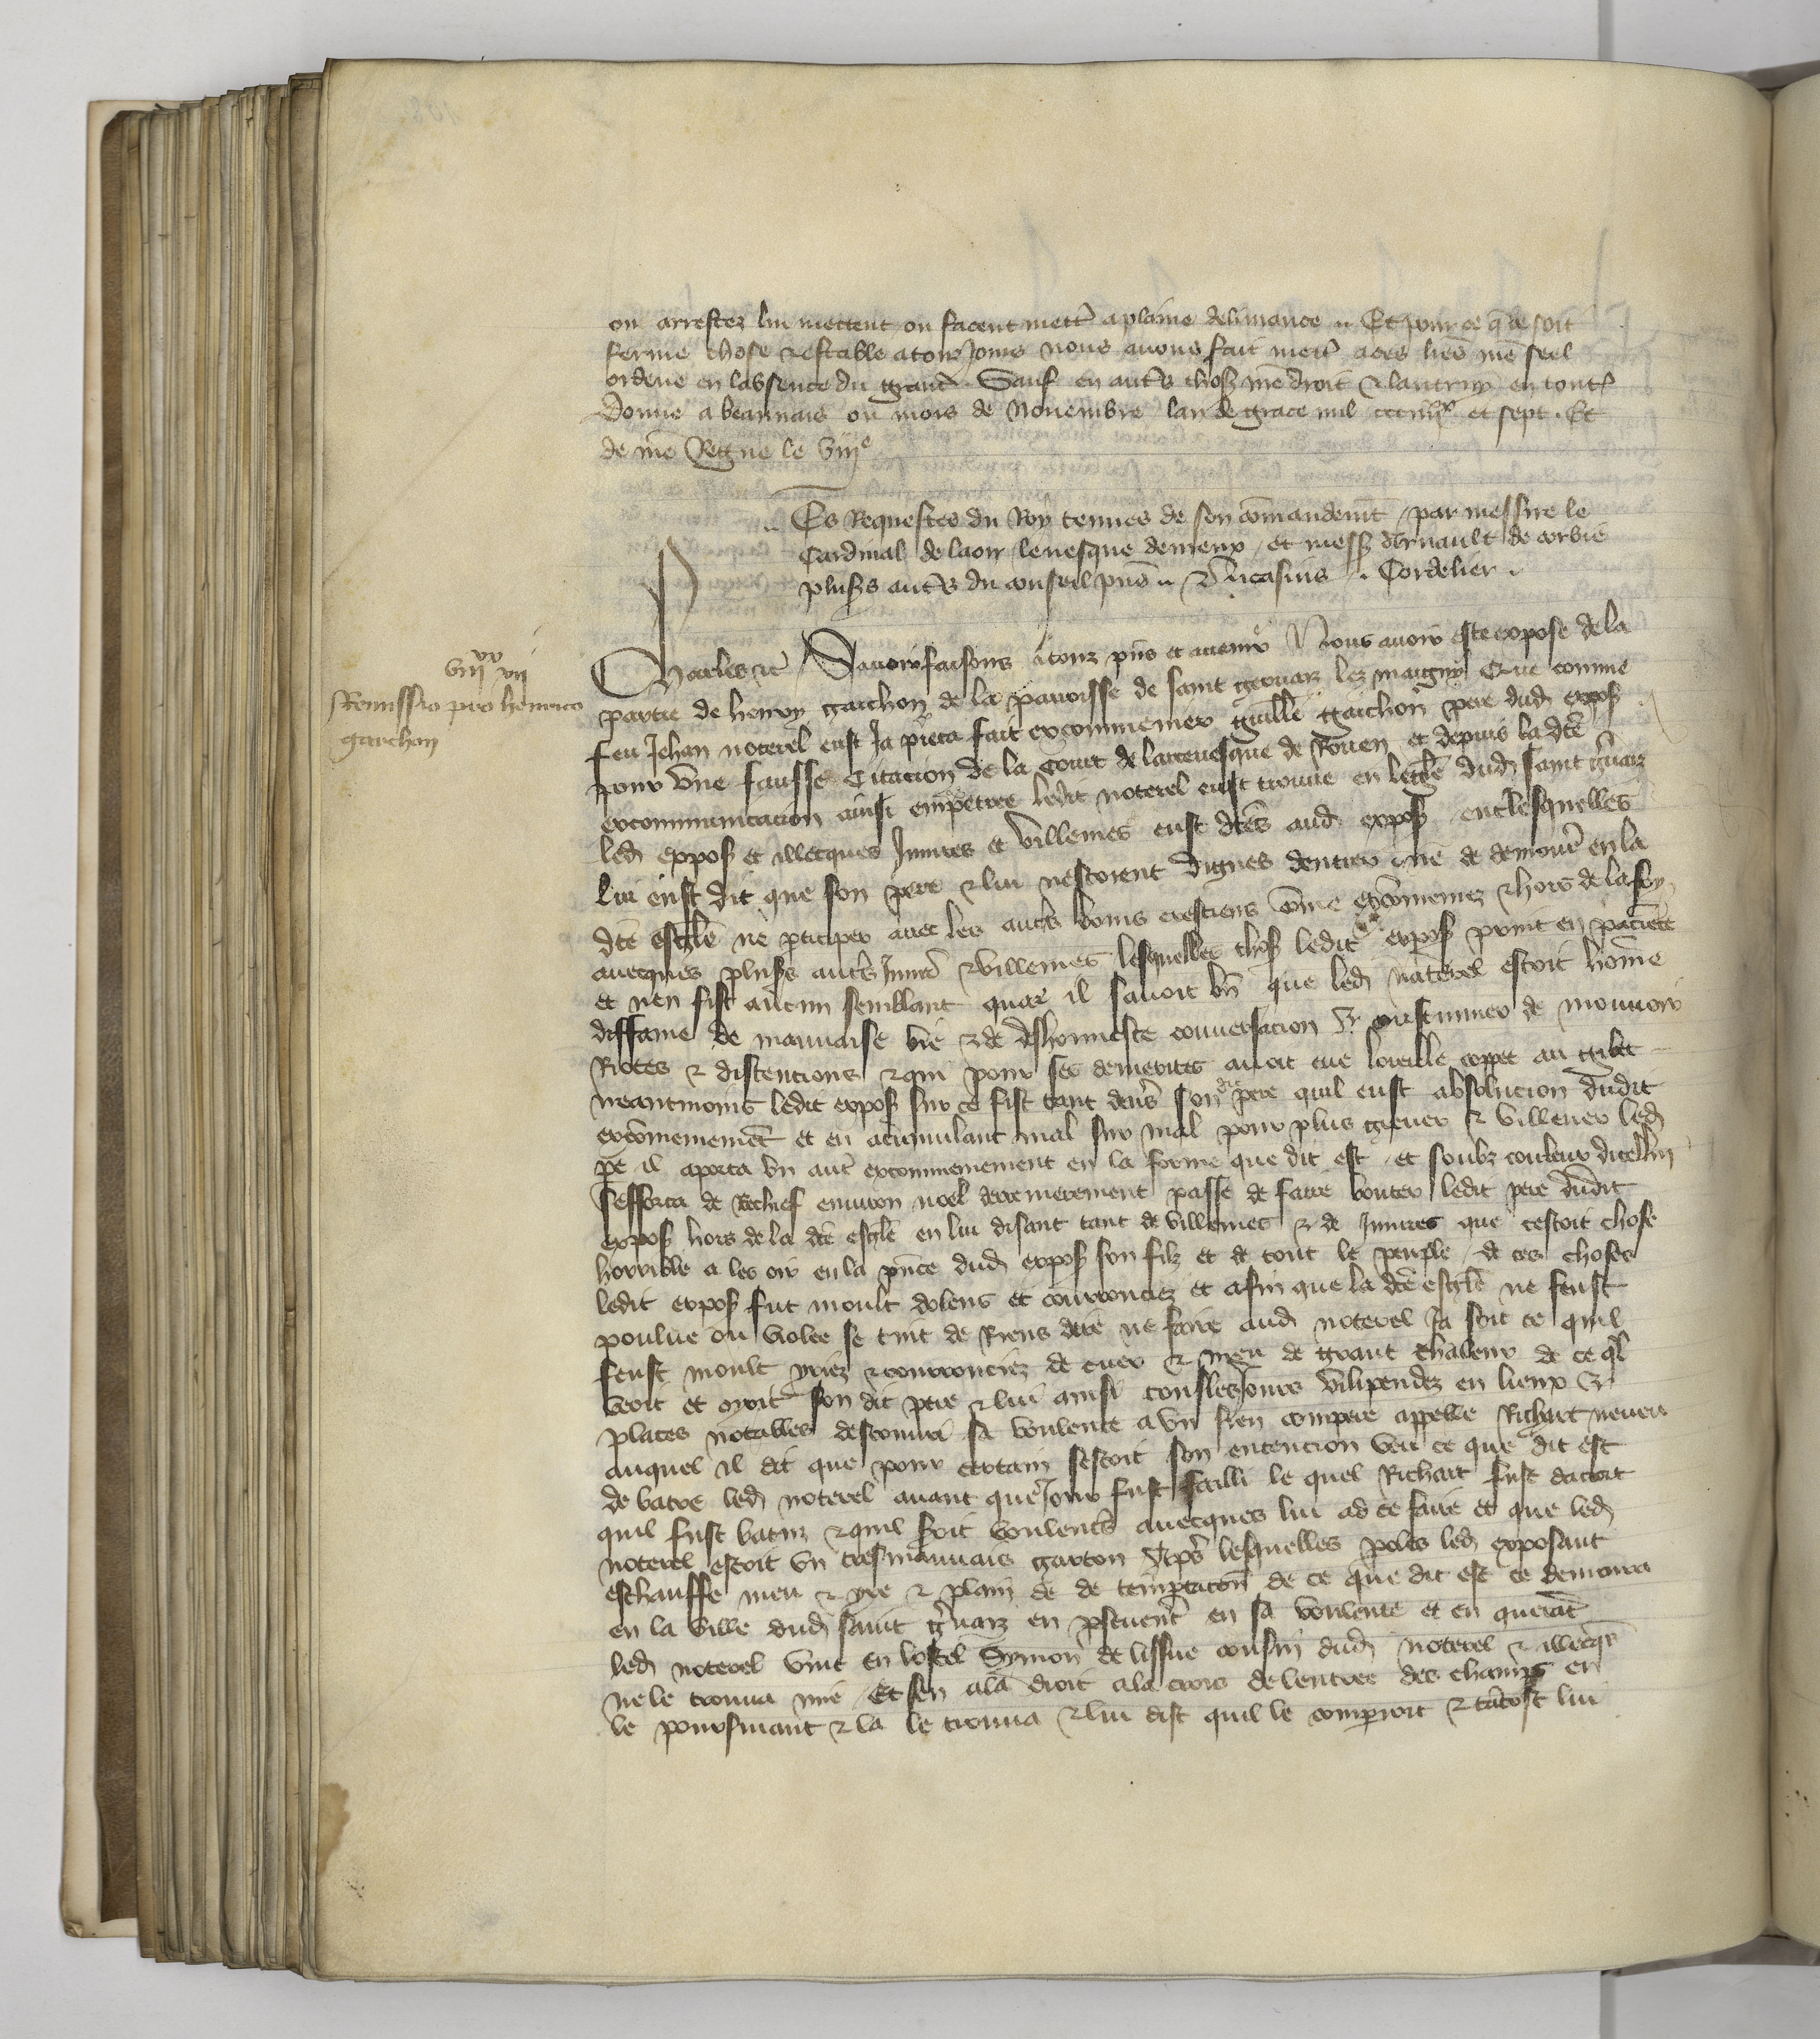 ou arrestez lui mettent ou facent mettr a plaine deliurance .. Et pour ce q̄ ce soit
ferme chose & estable a touzjours nous auons fait mettr a ces lr̄es nr̄e seel
ordene en labsence du grant . Sauf en autr̄s chos nr̄e droit & lautruy en toutes
Donne a beauuais ou mois de Nouembre lan de grace mil ccc iiiixx et sept . Et
de nr̄e Regne le viiie
.. Es Requestes du Roy tenues de son cōmandemt̄ / par messire le
Cardinal de laon leuesque de meaux / et mess̄ Arnault de corbie
plus̄s autr̄s du conseil pn̄s ..  . Cordelier .
iiiixx vii
Remissio pro henrico
garchon
Charles &c̄ Sauoir faisons a touz pn̄s et auenir Nous auoir este expose de la
partie de henry garchon de la parroisse de saint geruaiz lez maigny Que comme
feu Jehan noterel eust Ja pieca fait excommenier guille garchon pere dud expos̄
pour vne fausse Citacion de la Court de larceuesque de Rouen et depuis la dtē
excommunicacion ainsi empetree ledit noterel eust trouue en leglē dud saint gr̄uaiz
led expos̄ et illecques Iniures et villenies eust dtēs aud expos̄ entr lesquelles
lui eust dit que son pere & lui nestoient dignes dentrer ne de demourr̄ en la
dtē esglē ne pticiper auec les autr̄s bons crestiens cōme excōmeniez & hors de la foy
auecques plus̄s autr̄s Iniurs̄ & villenies lesquelles chos̄ ledit expos̄ print en pacience
et nen fist aucun semblant quar il sauoit bn̄ que led naterel estoit hōme
diffame de mauuaise vie & de deshonneste conuersacion & coustumier de mouuoir
Riotes & discencions & qui pour ses demerites auoit eue loreille coppee au gibet
neantmoins ledit expos̄ sur ce fist tant deurs̄ son dit pere quil eust absolucion dudit
excōmeniement et en acumulant mal sur mal pour plus greuer & villener led
pe il aporta vn autr̄ excommeniement en la forme que dit est / et soubz couleur dicellui
sefforca de rechief enuiron noel derrenierement passe de faire bouter ledit pere dudit
expos̄ hors de la dtē esglē en lui disant tant de villenies & de Iniures que cestoit chose
horrible a les oir en la pn̄ce dud expos̄ son filz et de tout le peuple / de ces choses
ledit expos̄ fut moult dolens et courrouciez et afin que la dtē esglē ne feust
poulue ou violee se tint de riens dire ne faire aud noterel Ja soit ce quil
feust moult yriez & courrouciez de cuer & meu de grant chaleur de ce ql̄
veoit et ooit son dit pere & lui ainsi tousles Jours vilipendez en lieux &
places notables descouuri sa voulente a vn sien compere appelle Richart neueu
auquel il dit que pour certain sestoit son entencion veu ce que dit est
de batre led noterel auant que Jour fust failli le quel Richart fust dacort
quil fust batuz & quil soit voulentrs̄ auecques lui ad ce faire et que led
noterel estoit vn tresmauuais garcon Aprs̄ lesquelles poles led exposant
eschauffe meu & yre & plain de de temptacon̄ de ce que dit est ce demoura
en la ville dud saint gr̄uaiz en pseuerāt en sa voulente et en querāt
led noterel vint en lostel Symon de lissue cousin dud noterel & illecqs
ne le trouua mie / Et sen ala droit a la crois de lentree des champs en
le poursuiuant & la le trouua & lui dist quil le comperroit & tātost lui